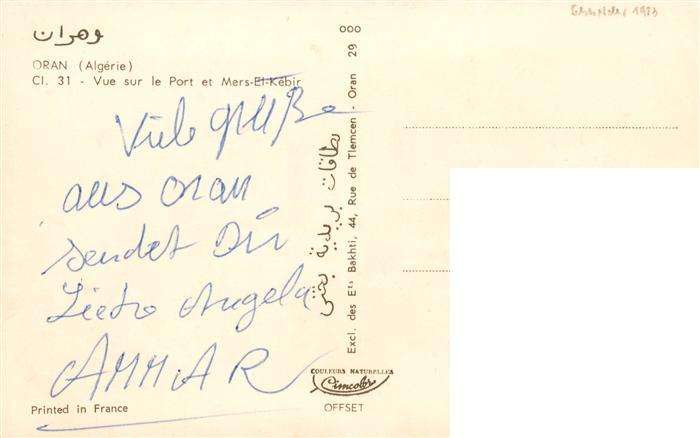 وهران
ORAN (Algérie)
Cl. 31 - Vue sur le Port et Mers-El-Kébir
Viele grüße
aus oran
sendet Dir
Angela
AMMAR
Printed in France
بطاقات بريدية بختي
Excl. des Ets Bakhti, 44, Rue de Tlemcen - Oran 29 000
COULEURS NATURELLES
Cimcolor
OFFSET
1973